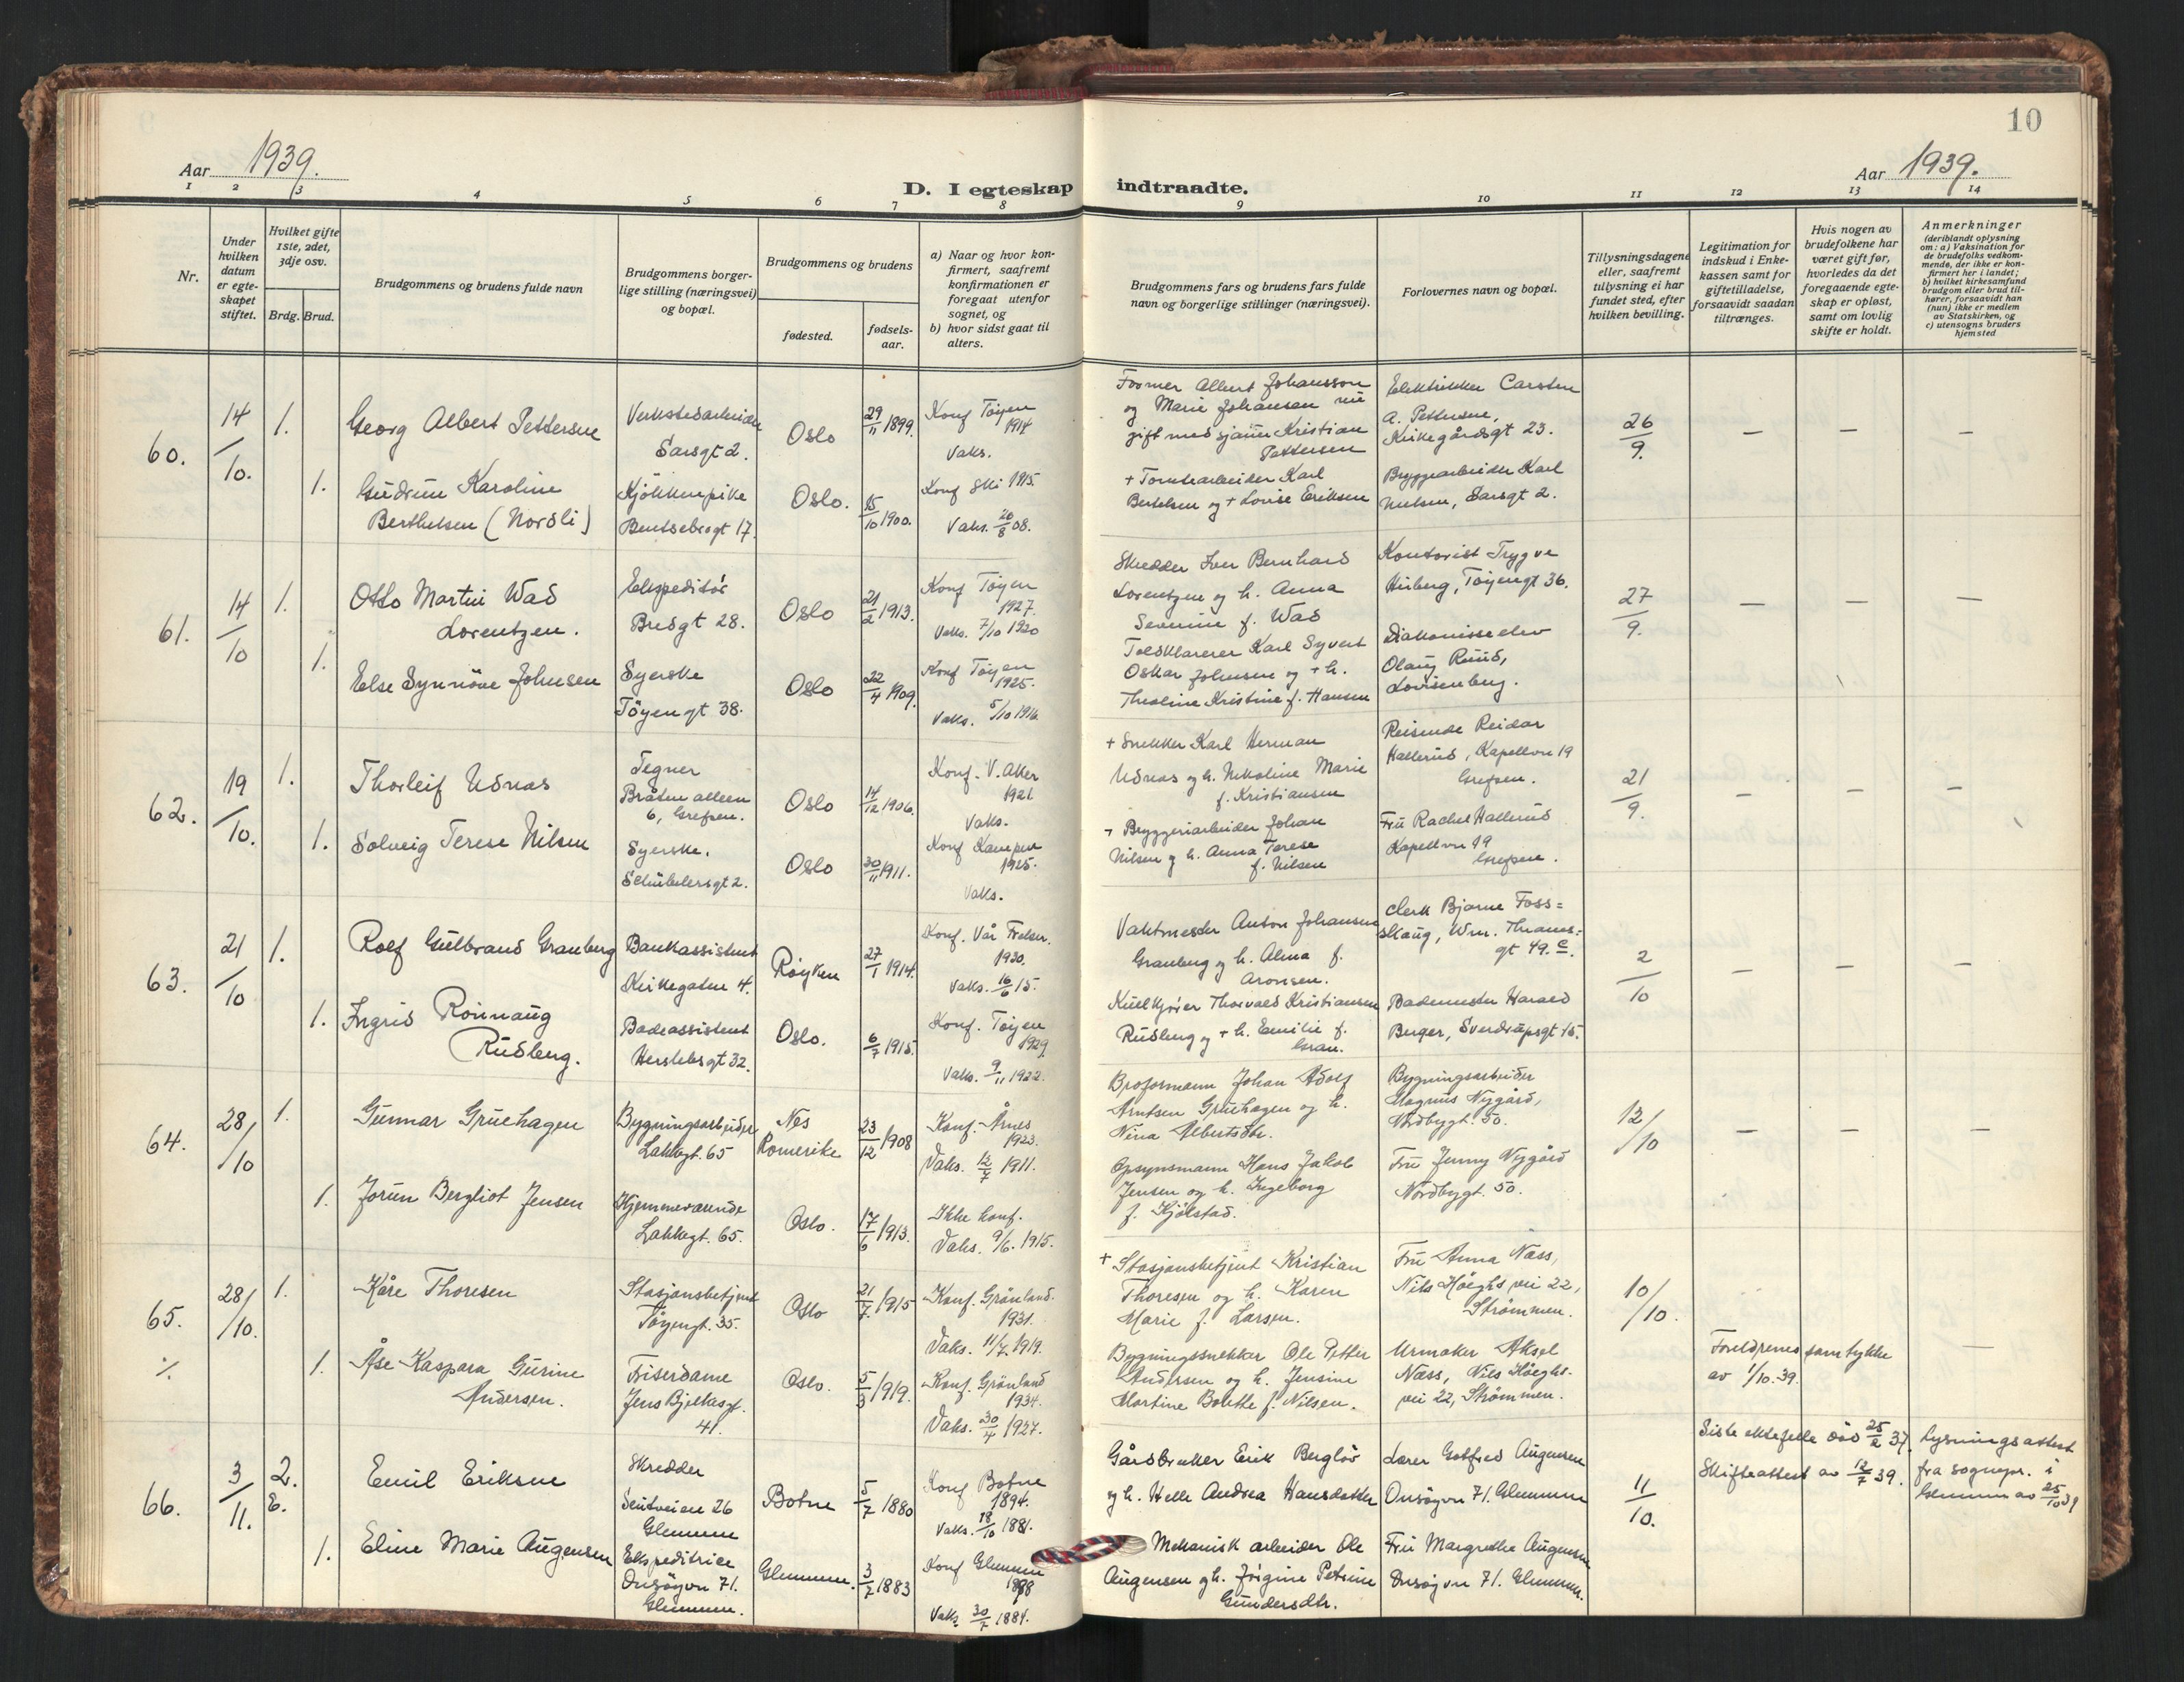 10
Aar 1939.
Aar 1939.
D. I egteskap indtraadte.
1 2 3 4 5 6 7 8 9 10 11 12 13 14
Nr.
Under hvilken datum er egteskapet stiftet.
Hvilket gifte 1ste, 2det, 3dje osv.
Brdg. Brud.
Brudgommens og brudens fulde navn
Brudgommens borgerlige stilling (næringsvei) og bopæl.
Brudgommens og brudens
fødested.
fødselsaar.
a) Naar og hvor konfirmert, saafremt konfirmationen er foregaat utenfor sognet, og
b) hvor sidst gaat til alters.
Brudgommens fars og brudens fars fulde navn og borgerlige stillinger (næringsvei).
Forlovernes navn og bopæl.
Tillysningsdagene eller, saafremt tillysning ei har fundet sted, efter hvilken bevilling.
Legitimation for indskud i Enkekassen samt for giftetilladelse, forsaavidt saadan tiltrænges.
Hvis nogen av brudefolkene har været gift før, hvorledes da det foregaaende egteskap er opløst, samt om lovlig skifte er holdt.
Anmerkninger
(deriblandt oplysning om: a) Vaksination for de brudefolks vedkommende, der ikke er konfirmert her i landet; b) hvilket kirkesamfund brudgom eller brud tilhører, forsaavidt han (hun) ikke er medlem av Statskirken, og c) utensogns bruders hjemsted
60.
14/10.
1.
Georg Albert Pettersen
Verkstedarbeider
Sarsgt 2.
Oslo
29/11 1899.
Konf Tøyen
1914
Vaks.
Former Albert Johansson
og Marie Johansen nu
gift med sjauer Kristian
Pettersen
Elektriker Carsten
A. Pettersen,
Kirkegårdsgt 23.
26/9.
— — —
1.
Gudrun Karoline
Berthelsen (Nordli)
Kjökkenpike
Bentsebrogt 17.
Oslo.
15/10 1900.
Konf Ski 1915.
Vaks. 20/8 08.
+ Tomtearbeider Karl
Bertelsen og + Lovise Eriksen
Bryggearbeider Karl
Nielsen, Sarsgt 2.
61.
14/10
1.
Otto Martin Wad
Lorentzen.
Ekspeditör
Bredgt 28.
Oslo
21/2 1913.
Konf Tøyen
1927.
Vaks. 7/10 1920
Skredder Iver Bernhard
Lorentzen og h. Anna
Severine f. Wad
Kontorist Trygve
Hiberg, Tøyengt 36.
27/9.
— — —
1.
Else Synnöve Johnsen
Syerske
Töyengt 38.
Oslo
22/4 1909.
Konf Tøyen
1925.
Vaks. 5/10 1916
Toldklarerer Karl Syvert
Oskar Johnsen og + h.
Theoline Kristine f. Hansen
Diakonisseelev
Olaug Ruud,
Lovisenberg.
62.
19/10.
1.
Thorleif Udnæs
Tegner
Bråten alleen
6, Grefsen.
Oslo
14/12 1906.
Konf. V. Aker
1921
Vaks.
+ Snekker Karl Herman
Udnæs og h. Nikoline Marie
f. Kristiansen
Reisende Reidar
Hallerud, Kapellvn 19
Grefsen.
21/9.
— — —
1.
Solveig Terese Nilsen
Syerske.
Schübelersgt 2.
Oslo
30/11 1911.
Konf Kampen
1925.
Vaks.
+ Bryggeriarbeider Johan
Nilsen og h. Anna Terese
f. Nilsen
Fru Rachel Hallerud
Kapellvn 19
Grefsen.
63.
21/10
1.
Rolf Gulbrand Granberg
Bankassistent
Kirkegaten 4.
Røyken
27/1 1914.
Konf. Vår Frelser.
1930.
Vaks. 16/6 15.
Vaktmester Anton Johansen
Granberg og h. Alma f.
Aronsen.
Clerk Bjarne Foss=
skaug, Wm. Thranes=
gt 49. c.
2/10
— — —
1.
Ingrid Rönnaug
Rudberg.
Badeassistent
Herslebsgt 32.
Oslo.
6/7 1915.
Konf. Tøyen
1929
Vaks. 9/11 1922.
Kullkjører Thorvald Kristiansen
Rudberg og + h. Emilie f.
Gran.
Bademester Harald
Berger, Sverdrupsgt 15.
64.
28/10
1.
Gunnar Gruehagen
Bygningsarbeider
Lakkegt. 65
Nes
Romerike
23/12 1908
Konf. Årnes
1923.
Vaks. 12/7 1911.
Broformann Johan Adolf
Arntsen Gruehagen og h.
Nina Albertsdtr.
Bygningsarbeider
Magnus Nygård,
Nordbygt. 50.
12/10
— — —
1.
Jorun Bergliot Jensen
Hjemmeværende
Lakkegt. 65.
Oslo.
17/6 1913.
Ikke konf.
Vaks. 9/6. 1915.
Opsynsmann Hans Jakob
Jensen og h. Ingeborg
f. Kjölstad.
Fru Jenny Nygård
Nordbygt. 50.
65.
28/10.
1.
Kåre Thoresen
Stasjonsbetjent
Tøyengt. 35.
Oslo
21/7. 1915
Konf. Grönland.
1931.
Vaks. 11/7. 1919.
+ Stasjonsbetjent Kristian
Thoresen og h. Karen
Marie f. Larsen.
Fru Anna Næss,
Nils Höeghs vei 22,
Strömmen.
10/10.
⁒
1.
Åse Kaspara Gurine
Andersen.
Friserdame
Jens Bjelkesgt.
41.
Oslo.
5/3 1919.
Konf. Grönland
1934.
Vaks. 30/4 1927.
Bygningssnekker Ole Petter
Andersen og h. Jensine
Martine Bolette f. Nilsen.
Urmaker Aksel
Næss, Nils Höeghs-
vei 22, Strömmen.
Foreldrenes samtykke
av 1/10. 39.
—
66.
3/11.
2.
E.
Emil Eriksen
Skredder
26
Glemmen
Botne
5/7 1880
Konf Botne
1894.
Vaks. 18/10 1881.
Gårdbruker Erik Berglöv
og h. Helle Andrea Hansdatter
Lærer Gotfred Augensen
Onsøyvn 71. Glemmen
11/10.
Siste ektefelle död 25/2 37.
Skifteattest av 12/7 39.
Lysningsattest
fra sognepr. i
Glemmen av 25/10 39
1.
Eline Marie Augensen
Ekspeditrice
Onsøyvn 71.
Glemmen.
Glemmen.
3/7 1883
Konf Glemmen
1898
Vaks 30/7 1884.
Mekanisk arbeider Ole
Augensen og h. Jörgine Petrine
Gundersdtr.
Fru Margrethe Augensen
Onsøyvn 71. Glemmen.